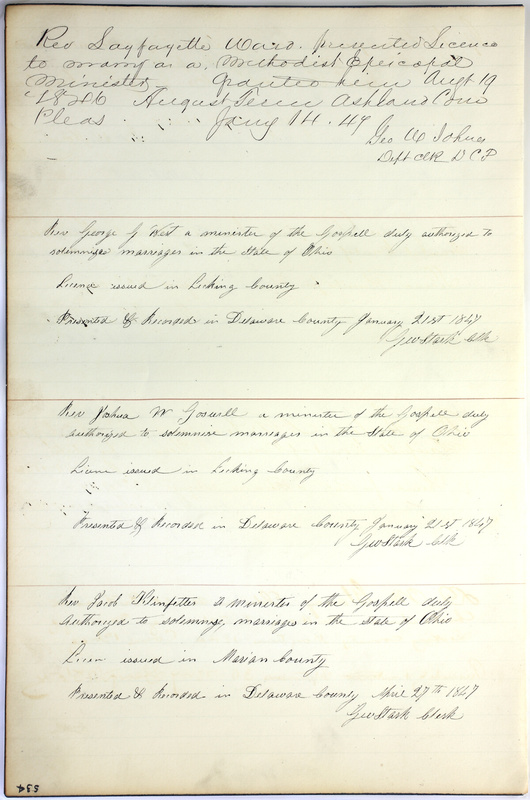 Rev Layfayette Ward. presented Licence
to marry as a. Methodist Episcopal
Minister granted him Augt 19
1846 August Term Ashland Com
Pleas Jany 14. 47
Geo W Johnes
Dept clk D C P
Rev George G West a minister of the Gospell duly authorized to
solemnize marriages in the State of Ohio
Licence issued in Licking County
Presented & Recorded in Delaware County January 21st 1847
Geo Stark Clk
Rev Joshua W Goswill a minister of the Gospell duly
authorized to solemnise marriages in the State of Ohio
Licene issued in Licking County
Presented & Recorded in Delaware County January 21st 1847
Geo Stark Clk
Rev Jacob Klinfetter a minister of the Gospell duly
authorized to solemnize marriages in the State of Ohio
Licen issued in Marian County
Presented & Recorded in Delaware County April 27th 1847
Geo Stark Clerk
534